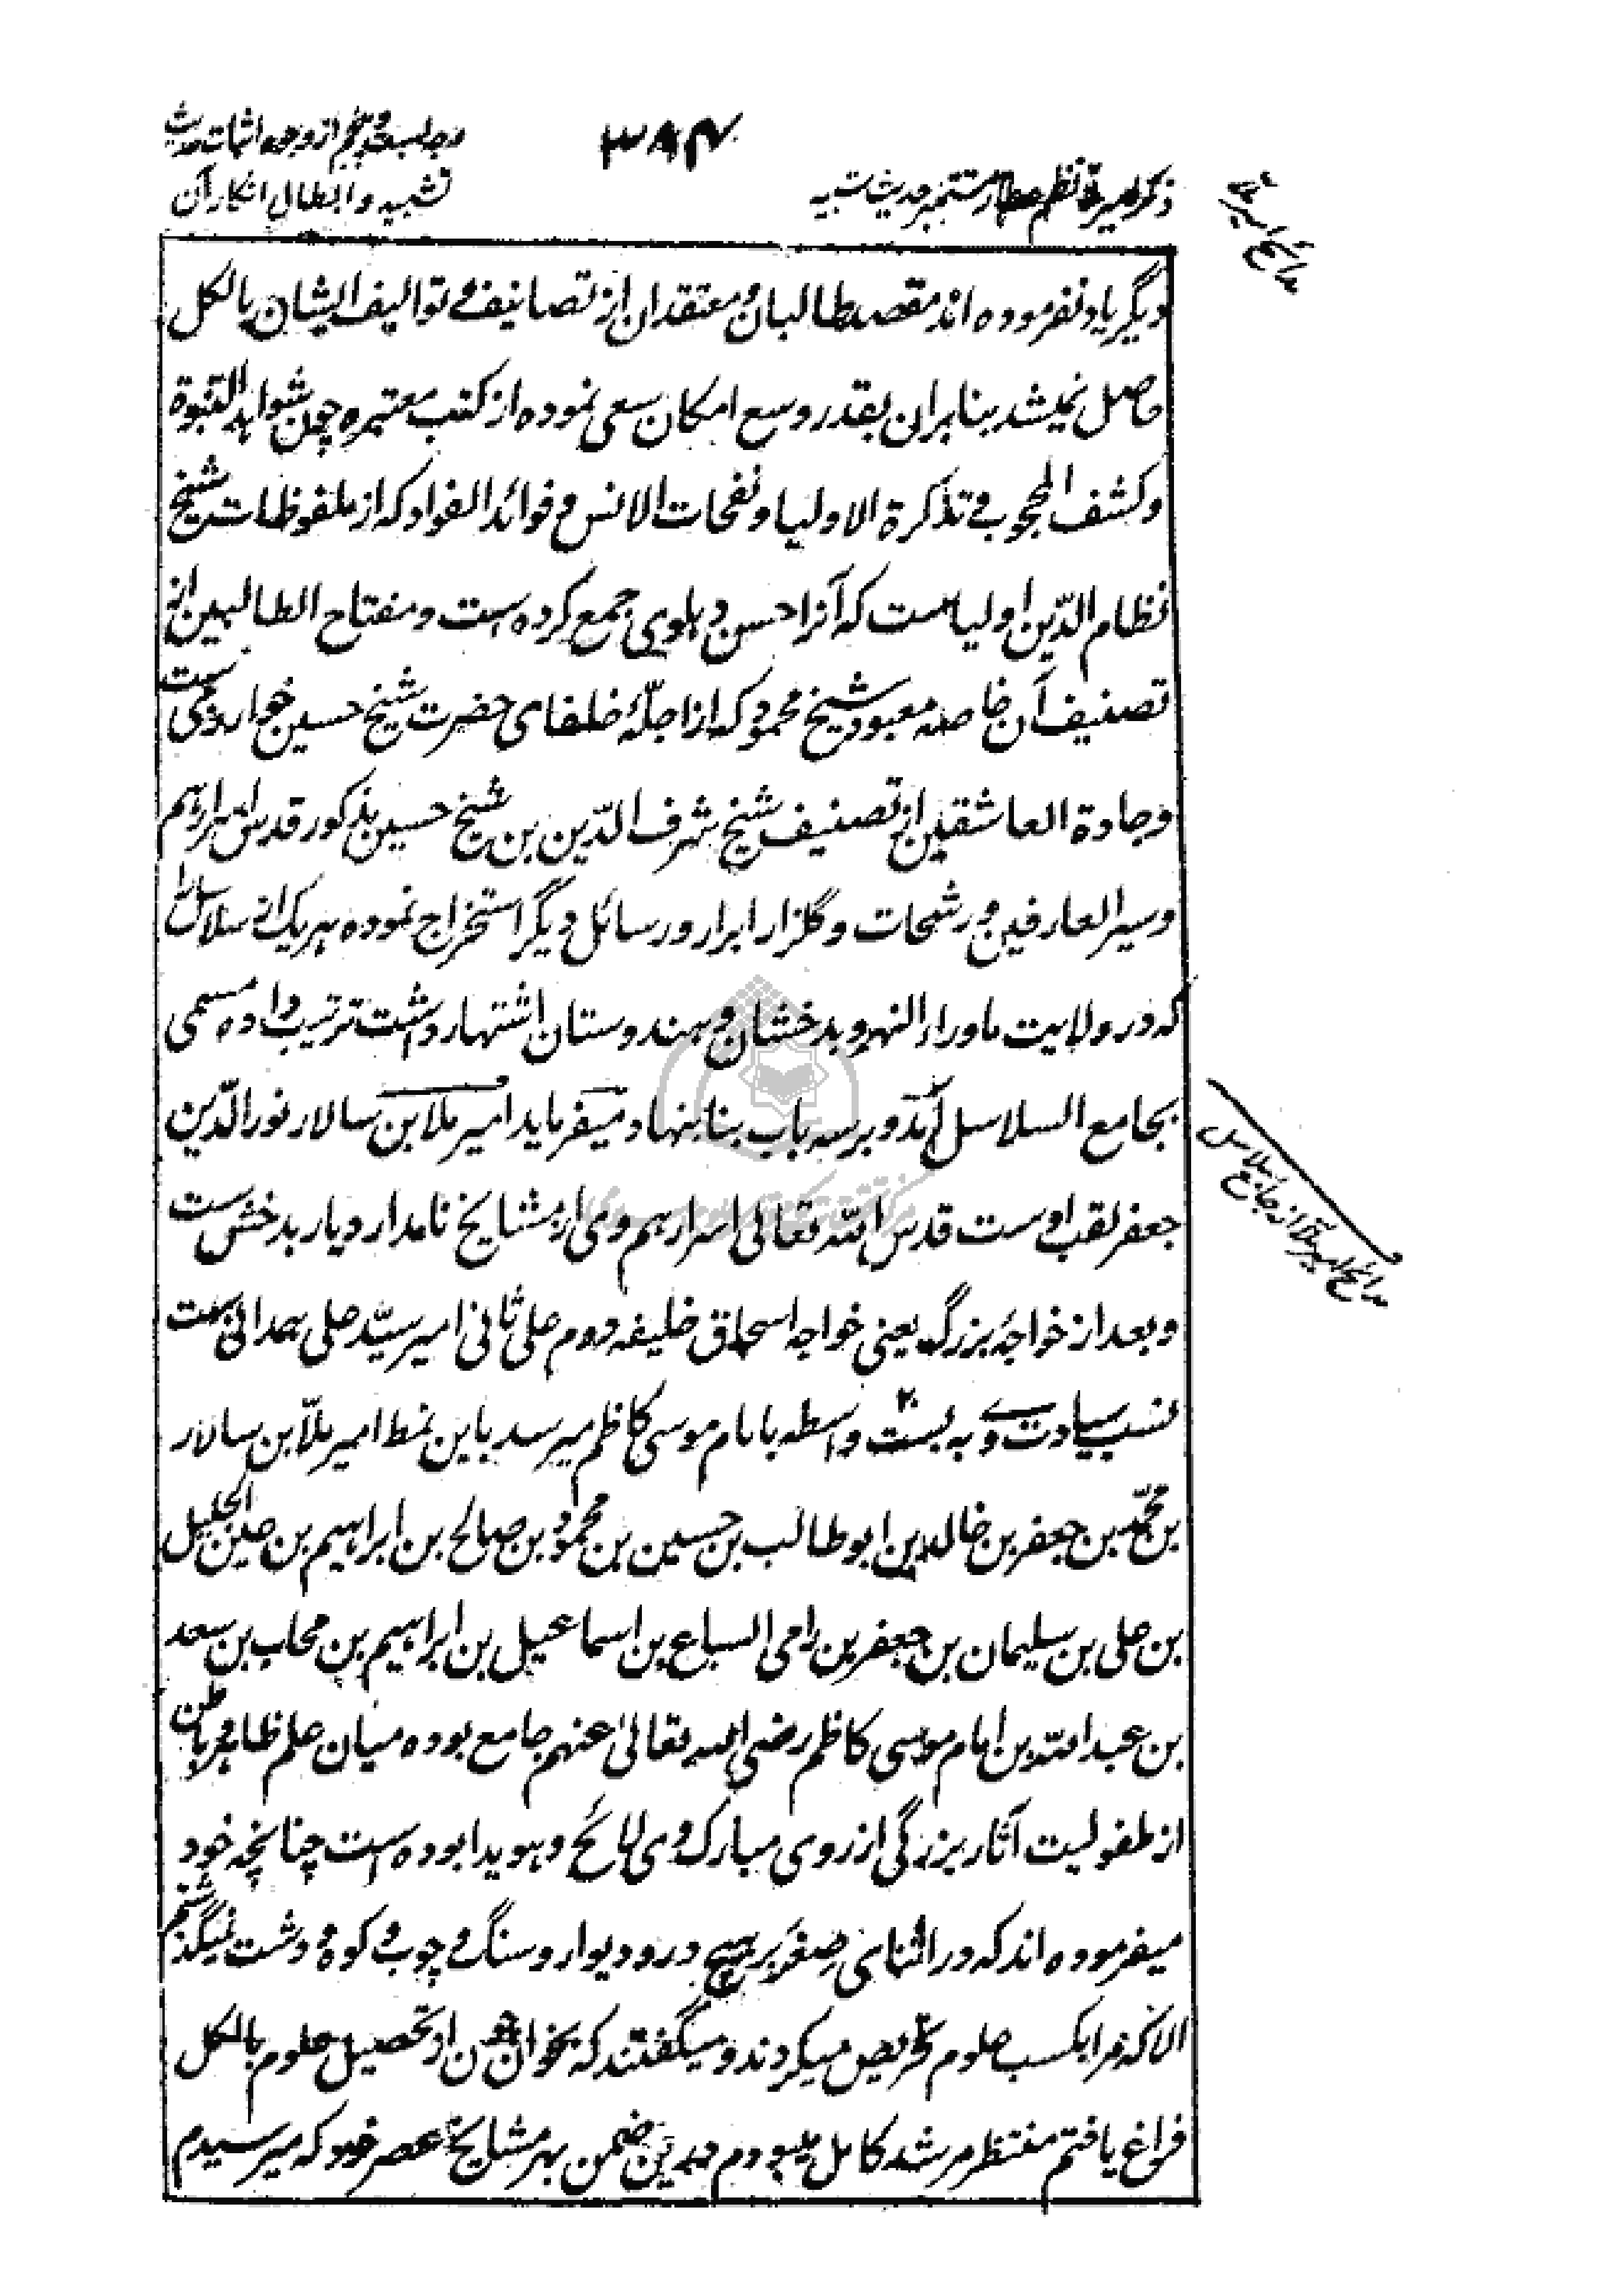 ۳۸۴
وجه بیست و پنجم از وجوه اثبات حدیث
تشبیه و ابطال انکار آن
ذکر نظم عطار متضمن حدیث تشبیه
دیگر یاد نفرموده اند مقصد طالبان و معتقدان از تصانیف و توالیف ایشان بالکل
حاصل نمیشد بنابران بقدر وسع امکان سعی نموده از کتب معتبره چون شواهد النبوة
و کشف المحجوب و تذکرة الاولیا و نفحات الانس و فوائد الفواد که از ملفوظات شیخ
نظام الدّین اولیاست که آنرا حسن دهلوی جمع کرده است و مفتاح الطالبین از
تصنیف آن خاصه معبود شیخ محمود که از اجلّهٔ خلفای حضرت شیخ حسین خوارزمی ست
و جادة العاشقین از تصنیف شیخ شرف الدّین بن شیخ حسین مذکور قدس اسرارهم
و سیر العارفین و رشحات و گلزار ابرار و رسائل دیگر استخراج نموده هر یک از سلاسل را
که در ولایت ماوراء النهر و بدخشان و هندوستان اشتهار داشت ترتیب داده مسمی
بجامع السلاسل گردد و بر سه باب بنا بنهاد میفرماید امیر ملا بن سالار نور الدّین
جعفر لقب اوست قدس الله تعالی اسرارهم وی از مشایخ نامدار دیار بدخش ست
و بعد از خواجهٔ بزرگ یعنی خواجه اسحاق خلیفه دوم علی ثانی امیر سیّد علی همدانی ست
نسب سیادت وی به بست واسطه بامام موسی کاظم میرسد باین نمط امیر ملّا بن سالار
بن محمّد بن جعفر بن خالد بن ابو طالب بن حسین بن محمود بن صالح بن ابراهیم بن عین الجلیل
بن علی بن سلیمان بن جعفر بن رامی السباع بن اسماعیل بن ابراهیم بن محاب بن سعد
بن عبد الله بن امام موسی کاظم رضی الله تعالیٰ عنهم جامع بوده میان علم ظاهر و باطن
از طفولیت آثار بزرگی از روی مبارک وی لائح و هویدا بوده است چنانچه خود
میفرموده اند که در اثنای صِغَر بر هیچ در و دیوار و سنگ و چوب و کوه و دشت نمیگذشتم
الا که مرا بکسب علوم تحریص میکردند و میگفتند که بخوان چون از تحصیل علوم بالکل
فراغ یافتم منتظر مرشد کامل میبودم درین ضمن بهر مشایخ عصر خود که میرسیدم
مدائح امیر ملا از جامع سلاسل